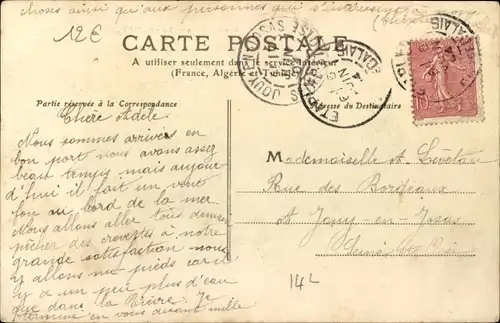 choses ainsi qu'aux personnes qui s'intéressent
12€
CARTE POSTALE
A utiliser seulement dans le service intérieur
(France, Algérie et Tunisie)
Partie réservée à la Correspondance
Adresse du Destinataire
Chère Adèle
Nous sommes arrivés en
bon port nous avons assez
beau temps mais aujour
d'hui il fait un vent
fou au bord de la mer
Nous allons aller tous demain
pêcher des crevettes à notre
grande satisfaction nous
y allons nu pieds car il
y a un peu plus d'eau
que dans la Bièvre. Je
termine en vous disant mille
Mademoiselle A.
Rue des Bordeaux
A Jouy-en-Josas
Seine
14L
10